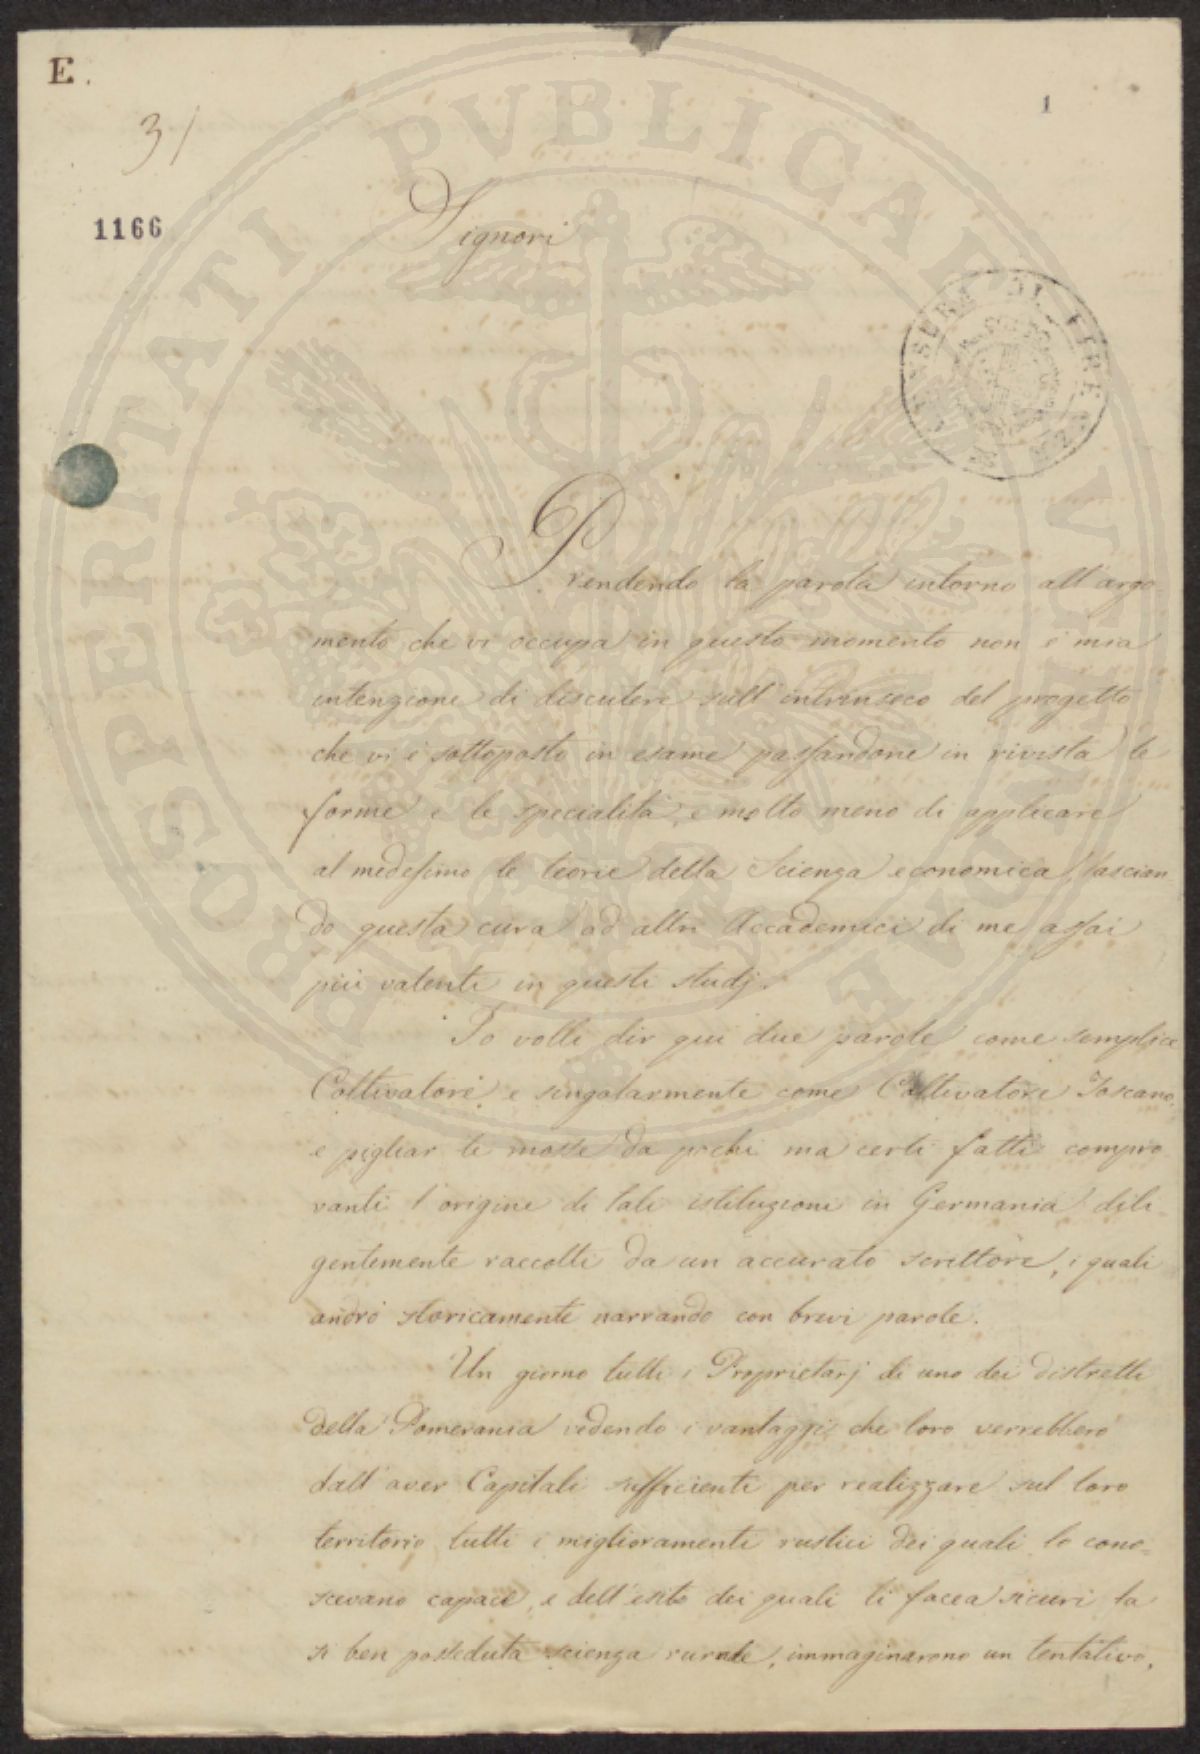 E.
1
31
1166
Signori
Prendendo la parola intorno all'argo-
mento che vi occupa in questo momento non è mia
intenzione di discutere sull'intrinseco del progetto
che vi è sottoposto in esame passandone in rivista le
forme e le specialità, e molto meno di applicare
al medesimo le teorie della Scienza economica, lascian-
do questa cura ad altri Accademici di me assai
più valenti in questi studj.
Io volli dir qui due parole come semplice
Coltivatore, e singolarmente come Coltivatore Toscano,
e pigliar le mosse da pochi ma certi fatti compro
vanti l'origine di tali istituzioni in Germania dili-
gentemente raccolti da un accurato scrittore, i quali
andrò storicamente narrando con brevi parole.
Un giorno tutti i Proprietarj di uno dei distretti
della Pomerania vedendo i vantaggi che loro verrebbero
dall'aver Capitali sufficienti per realizzare sul loro
territorio tutti i miglioramenti rustici dei quali lo cono-
scevano capace, e dell'esito dei quali li facea sicuri la
sì ben posseduta scienza rurale, immaginarono un tentativo,
PROSPERITATI PVBLICAE